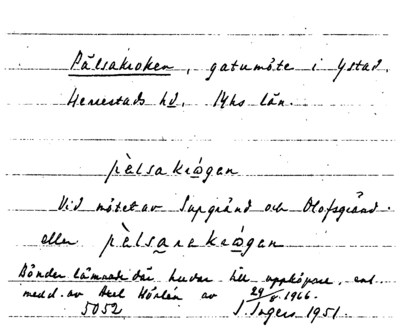 Pålsakroken, gatumöte i Ystad.
Herrestads hd, Mhs län.
pàlsakrógan
Vid mötet av Supgränd och Olofsgränd.
eller pàlsarakrógan
Bönder lämnade där hudar till uppköpare, enl.
medd. av Axel Hörlén av 29/5 1966.
5052 I Ingers 1951.